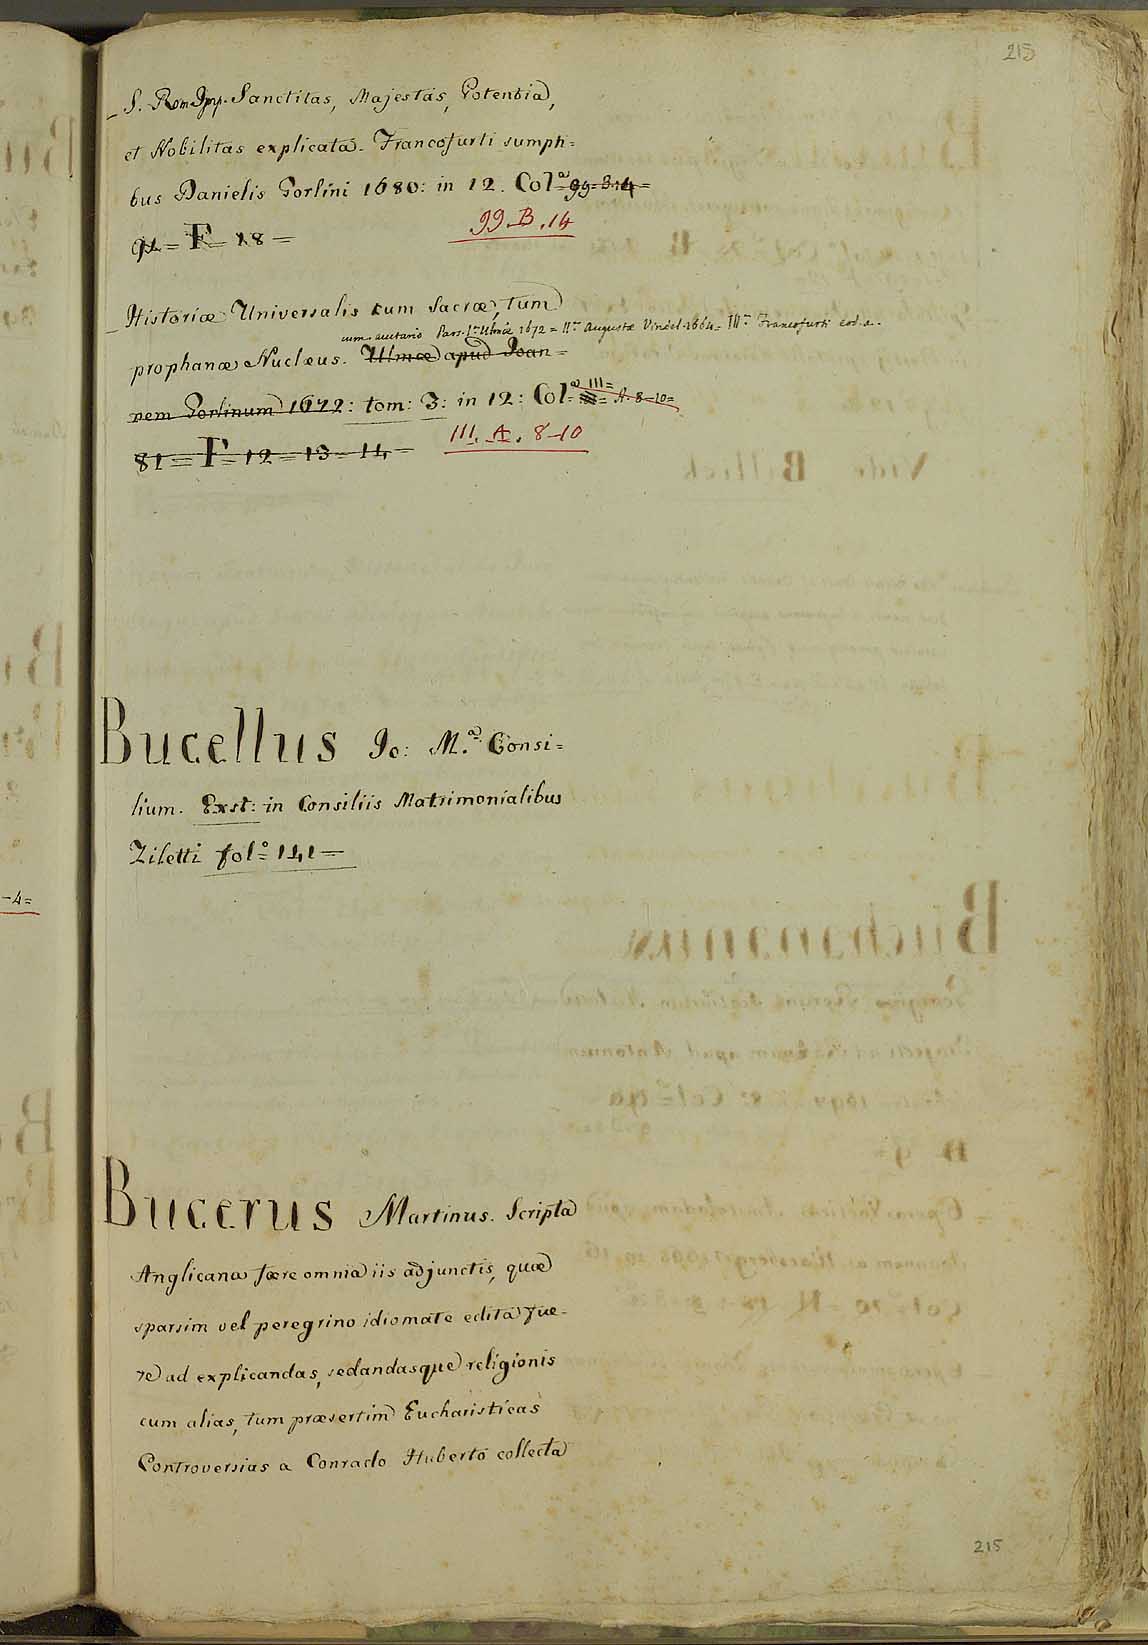 215
_ S. Rom. Imp. Sanctitas, Majestas, Potentia,
et Nobilitas explicata. Francofurti sumpti=
bus Danielis Gorlini 1680: in 12. Col.ª 99=B=14=
91=F=18= 99.B.14
_ Historiæ Universalis cum Sacræ, tum
cum auctario Pars. I.ª Ulmiæ 1672= II.ª Augustæ Vindel. 1664= III.ª Francofurti eod. a.
prophanæ Nucleus. Ulmæ apud Joan=
nem Gorlinum 1672: tom: 3: in 12: Col.ª III= A. 8-10=
81=F=12=13=14= III. A. 8-10
Bucellus Jo: M.ª Consi=
lium. Exst: in Consiliis Matrimonialibus
Ziletti fol.º 141=
-4=
Bucerus Martinus. Scripta
Anglicana fere omnia iis adjunctis, quæ
sparsim vel peregrino idiomate edita fue=
re ad explicandas, sedandasque religionis
cum alias, tum præsertim Eucharisticas
Controversias a Conrado Huberto collecta
215